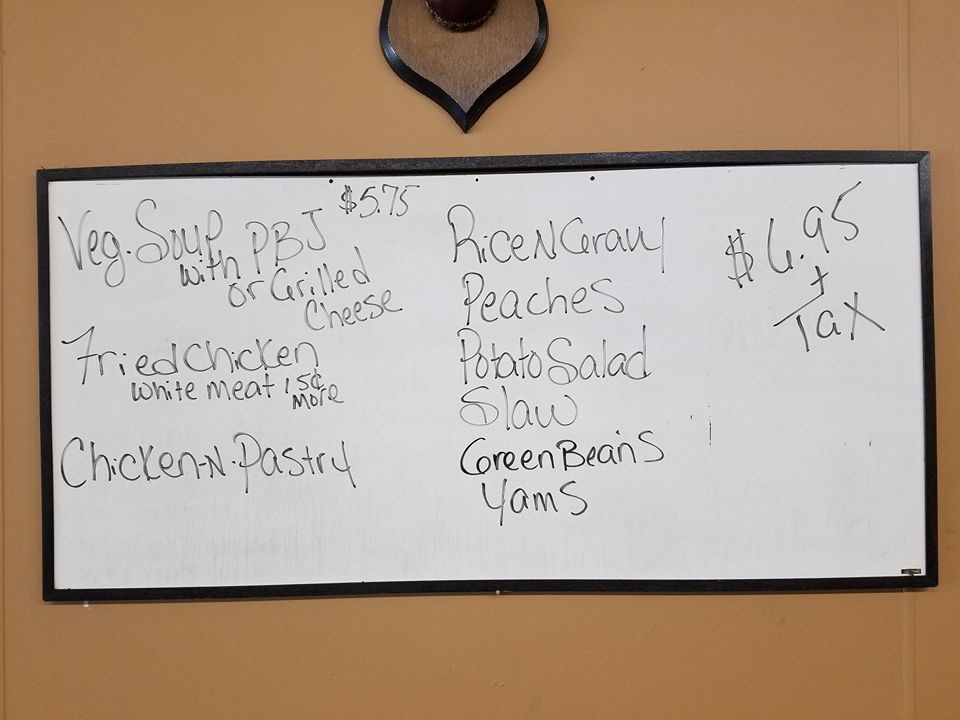 Veg. Soup $5.75
with PBJ
or Grilled
Cheese
Fried Chicken
white meat 15¢
more
Chicken-N-Pastry
Rice N Gravy
Peaches
Potato Salad
Slaw
Green Beans
Yams
$6.95
+
Tax